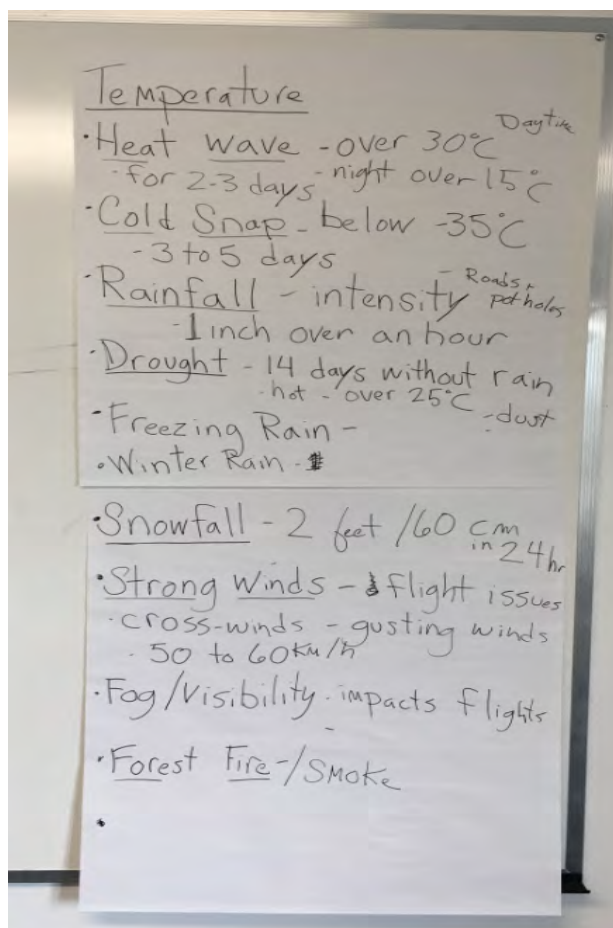 Temperature
• Heat wave - over 30°C Daytime
- for 2-3 days - night over 15°C
• Cold Snap - below -35°C
- 3 to 5 days
• Rainfall - intensity - Roads + potholes
- 1 inch over an hour
• Drought - 14 days without rain
- hot - over 25°C - dust
• Freezing Rain -
• Winter Rain -
• Snowfall - 2 feet / 60 cm in 24hr
• Strong Winds - flight issues
• cross-winds - gusting winds
• 50 to 60 km/h
• Fog/Visibility - impacts flights
-
• Forest Fire -/Smoke
•